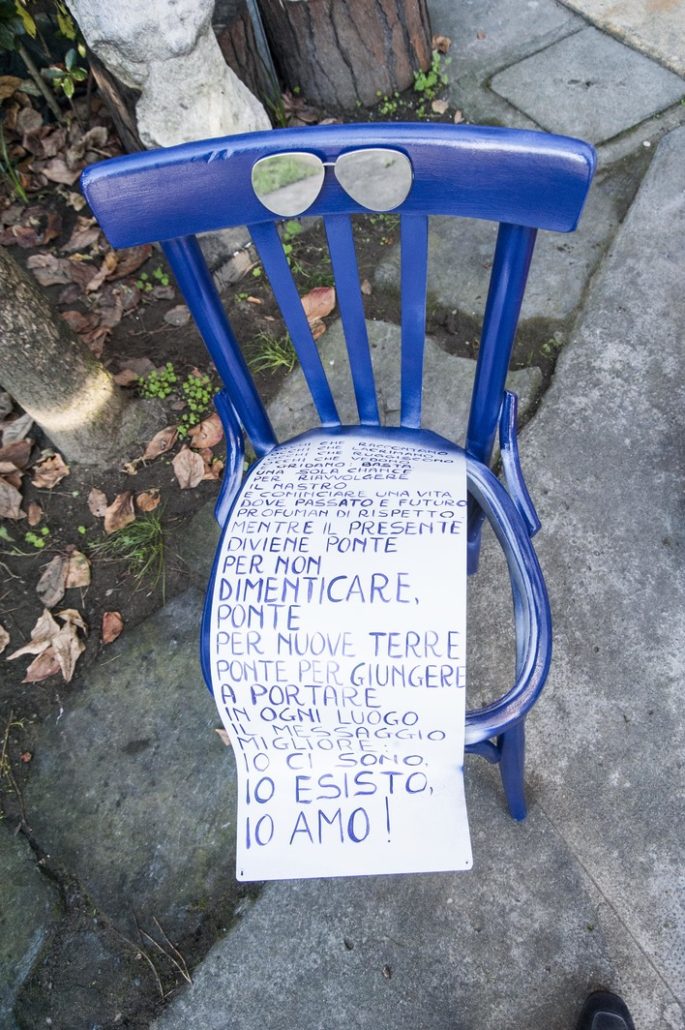 OCCHI CHE RACCONTANO
OCCHI CHE LACRIMANO
OCCHI CHE RUGGISCONO
CHE VEDONO
E GRIDANO: BASTA
UNA SOLA CHANCE
PER RIAVVOLGERE
IL NASTRO
E COMINCIARE UNA VITA
DOVE PASSATO E FUTURO
PROFUMAN DI RISPETTO
MENTRE IL PRESENTE
DIVIENE PONTE
PER NON
DIMENTICARE,
PONTE
PER NUOVE TERRE
PONTE PER GIUNGERE
A PORTARE
IN OGNI LUOGO
IL MESSAGGIO
MIGLIORE:
IO CI SONO,
IO ESISTO,
IO AMO!